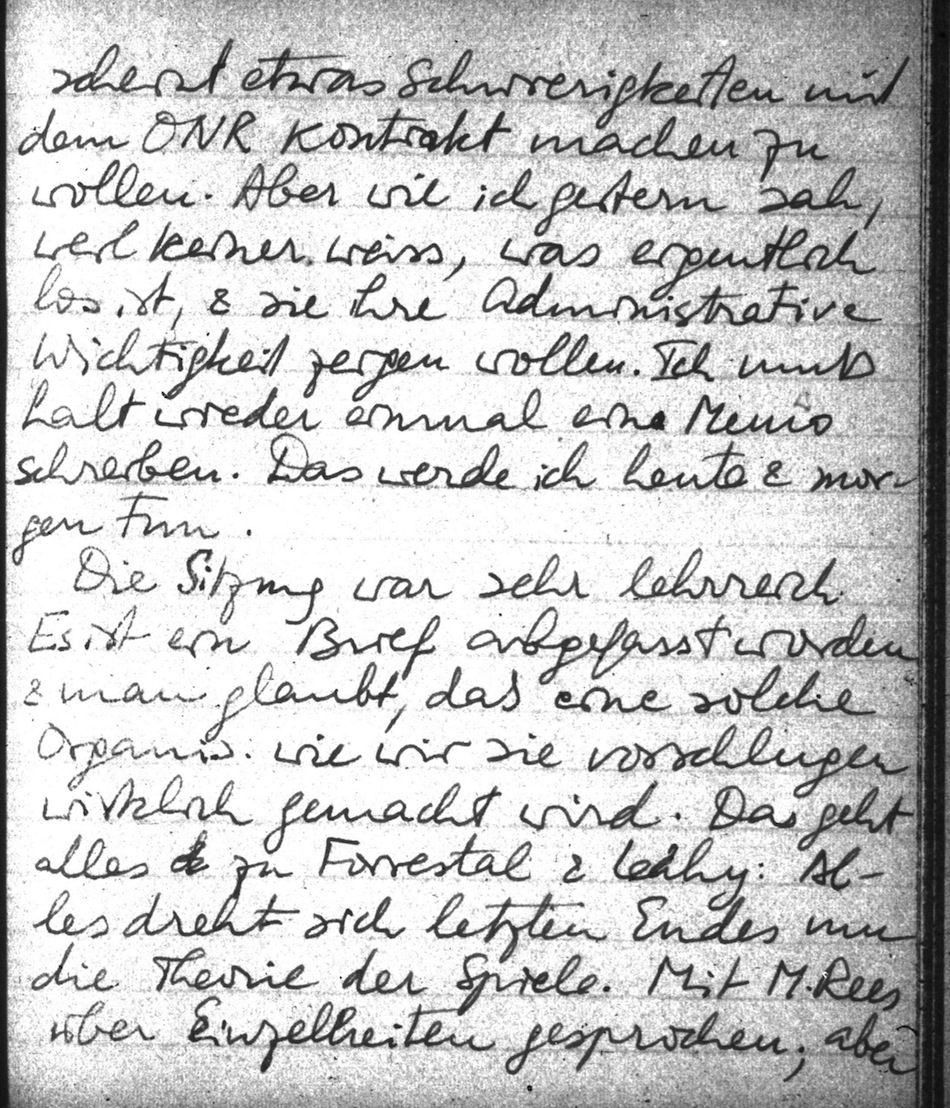 scheint etwas Schwierigkeiten mit
dem ONR Kontrakt machen zu
wollen. Aber wie ich gestern sah,
weil keiner weiss, was eigentlich
los ist, & sie ihre Administrative
Wichtigkeit zeigen wollen. Ich muß
halt wieder einmal eine Memo
schreiben. Das werde ich heute & mor-
gen tun.
Die Sitzung war sehr lehrreich
Es ist ein Brief abgefasst worden
& man glaubt, daß eine solche
Organis. wie wir sie vorschlugen
wirklich gemacht wird. Das geht
alles zu Forrestal & Leahy: Al-
les dreht sich letzten Endes um
die Theorie der Spiele. Mit M. Rees
über Einzelheiten gesprochen; aber